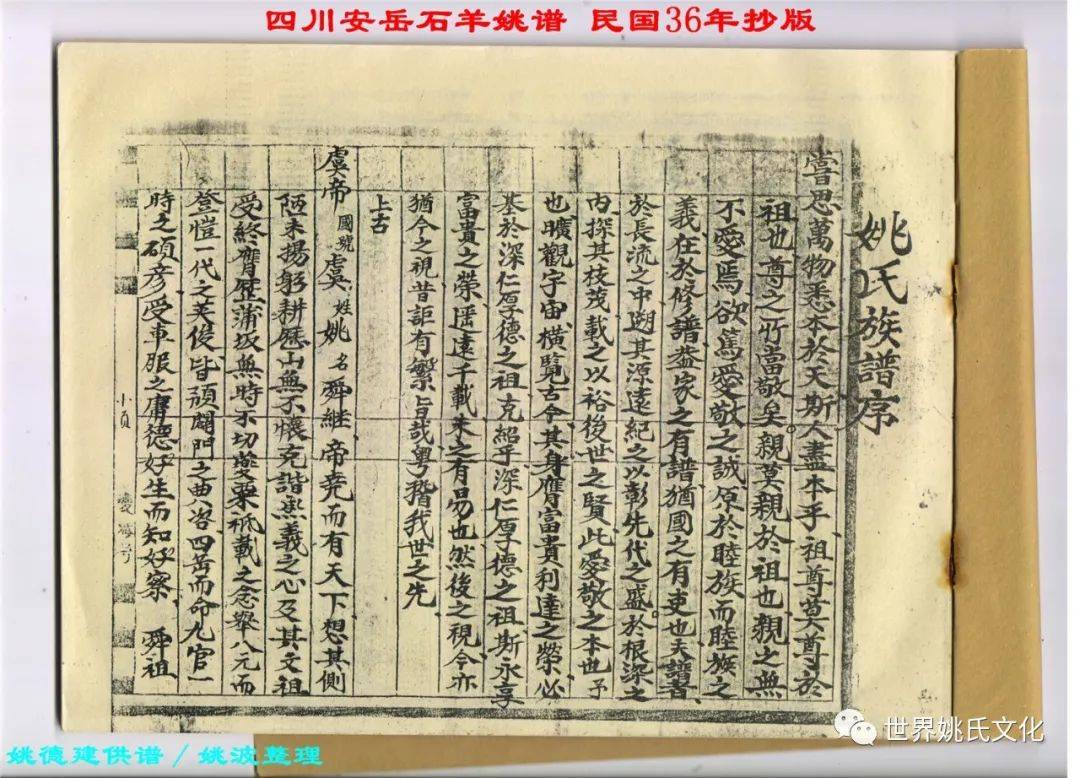 四川安岳石羊姚谱 民国36年抄版
姚氏族譜序
嘗思萬物悉本於天斯人盡本乎祖尊莫尊於
祖也尊之竹富敬矣親莫親於祖也親之無
不愛焉欲篤愛敬之誠原於睦族而睦族之
義在於修譜益家之有譜猶國之有吏也夫譜者
於長流之中遡其源遠紀之以彰先代之盛於根深之
内探其枝茂載之以裕後世之賢此愛敬之本也予
也曠觀宇宙橫覽古今其身膺富貴利達之榮必
基於深仁厚德之祖克紹乎深仁厚德之祖斯永享
富貴之榮遥遠千載未之有易也然後之視今亦
猶今之視昔詎有繁旨哉粵稽我世之先
上古
虞帝國號虞姓姚名舜継帝堯而有天下想其側
陋未揚躬耕歷山無不懷克諧烝義之心及其文祖
受終膺歷蒲坂無時不切愛栗祇載之念舉八元而
登愷一代之英俊皆碩闢門之典咨四岳而命九官一
時之碩彥受車服之庸德好生而知好察 舜祖
姚德建供谱/姚波整理
世界姚氏文化